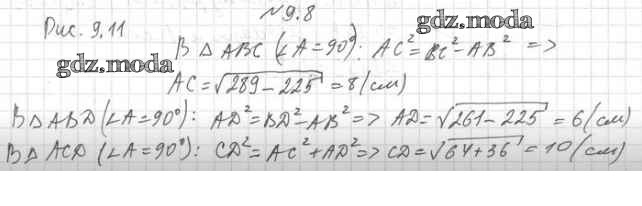 №9.8
gdz.moda
Рис. 9.11
В △ABC (∠A=90°): AC²=BC²-AB² =>
gdz.moda
AC=√289-225=8(см)
В △ABD (∠A=90°): AD²=BD²-AB² => AD=√261-225=6(см)
В △ACD (∠A=90°): CD²=AC²+AD² => CD=√64+36=10(см)